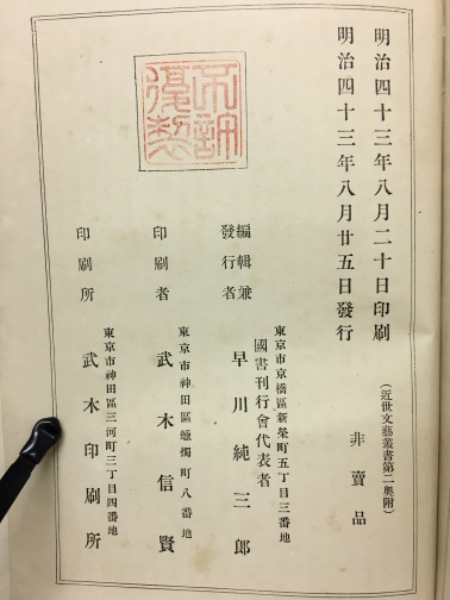 明治四十三年八月二十日印刷
明治四十三年八月廿五日發行
(近世文藝叢書第二奧附)
非賣品
不許複製
編輯兼
發行者
東京市京橋區新榮町五丁目三番地
國書刊行會代表者
早川純三郎
印刷者
東京市神田區蠟燭町八番地
武木信賢
印刷所
東京市神田區三河町三丁目四番地
武木印刷所